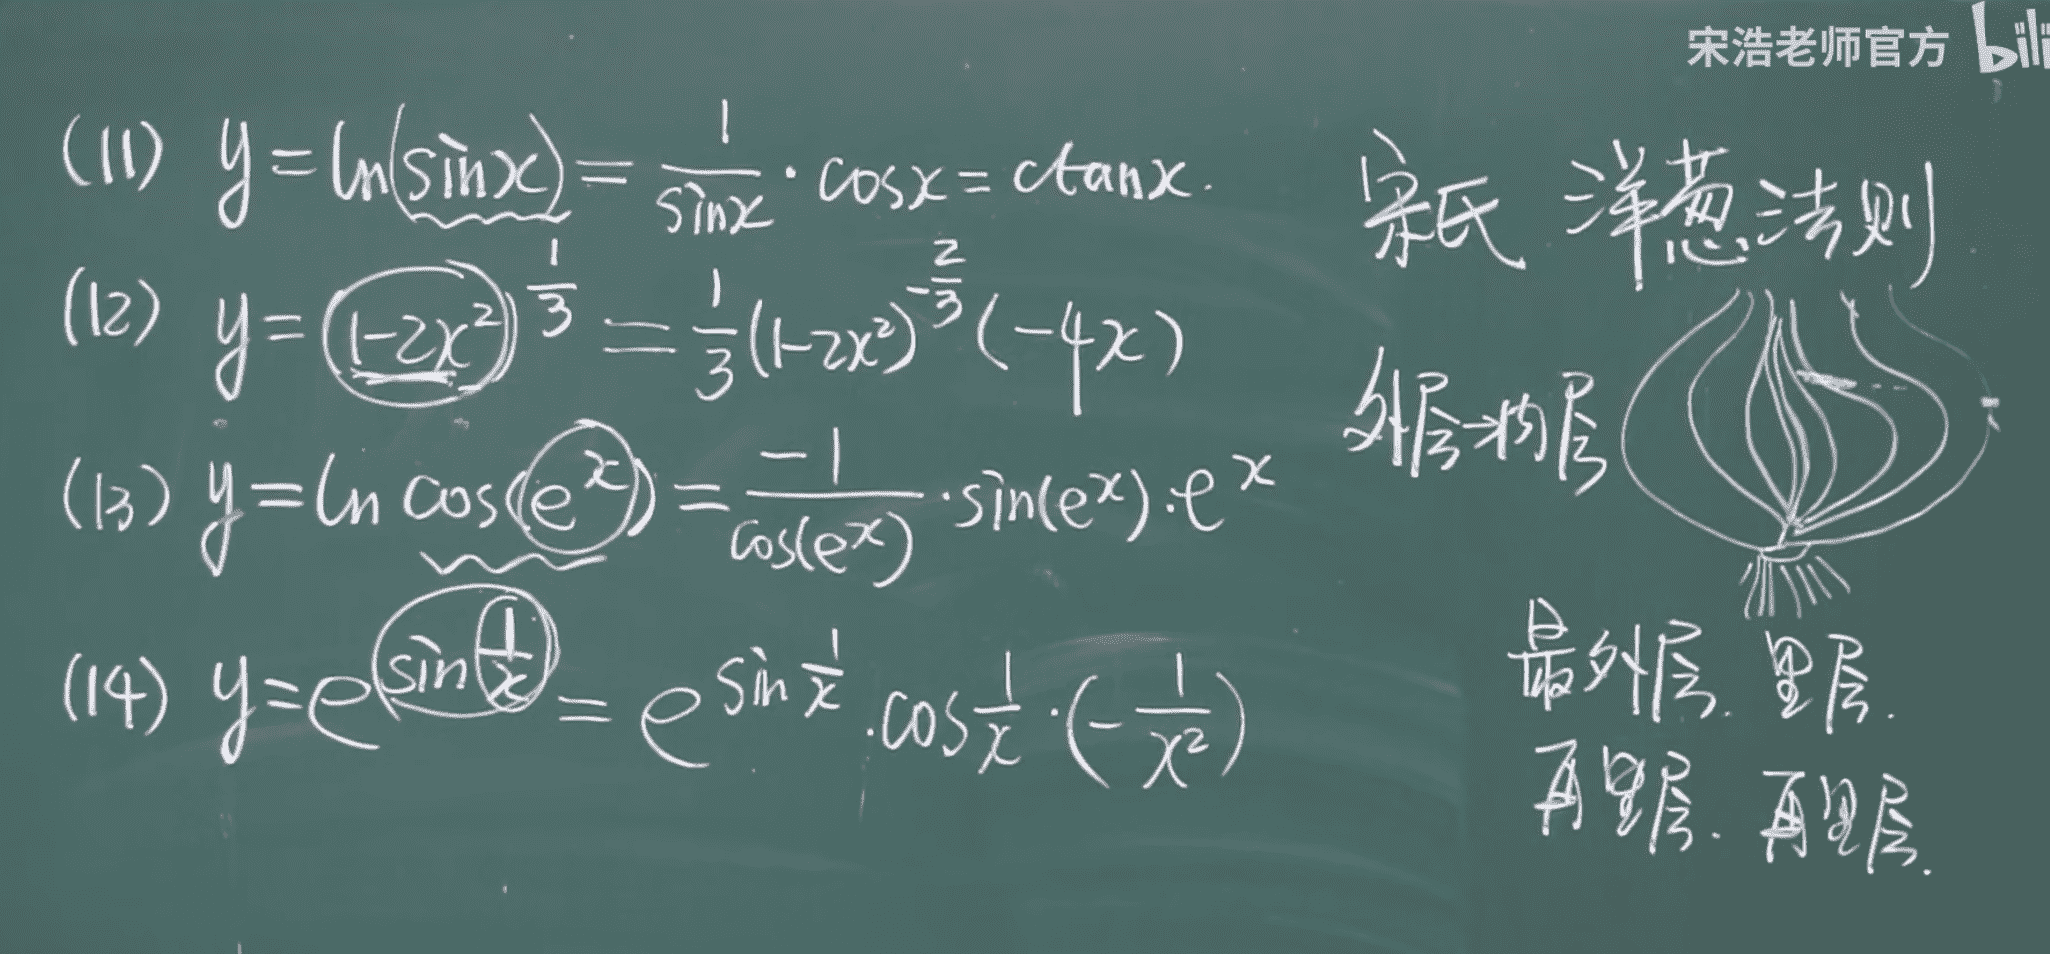 宋浩老师官方 bili
(11) y=ln(sinx)=1/sinx·cosx=ctanx.
(12) y=(1-2x²)^(1/3)=1/3(1-2x²)^(-2/3)(-4x)
(13) y=ln cos(e^x)=-1/cos(e^x)·sin(e^x)·e^x
(14) y=e^(sin 1/x)=e^(sin 1/x)·cos 1/x·(-1/x²)
宋氏 洋葱法则
外层→内层
最外层. 里层.
再里层. 再里层.